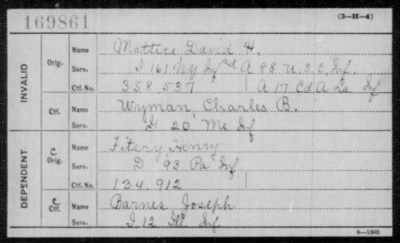 169861
(3-H-4)
INVALID
Orig.
Name Mattice David H.
Serv. I 161 Ny Inf A 98 U.S.C. Inf.
Ctf. No. 358,537 A 17 Cd A La Inf
Ctf.
Name Wyman, Charles B.
Serv. 20 Me Inf
DEPENDENT
C Orig.
Name Henry
Serv. D 93 Pa Inf
Ctf. No. 134,912
C Ctf.
Name Barnes Joseph
Serv. I 12 Ill Inf